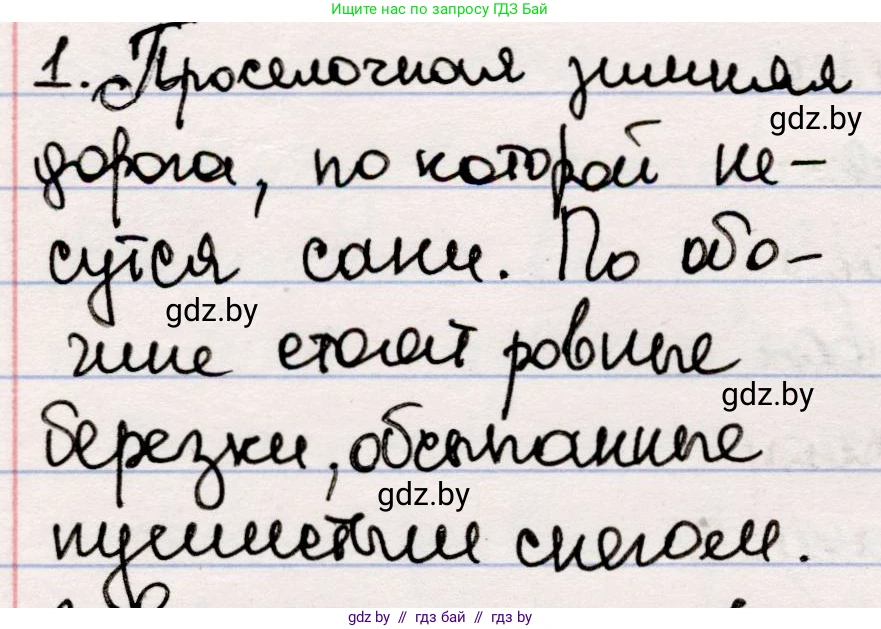 Ищите нас по запросу ГДЗ Бай
1. Проселочная зимняя
gdz.by
дорога, по которой не-
сутся сани. По обо-
gdz.by
чине стоят ровные
gdz.by
березки, обсыпанные
gdz.by
пушистым снегом.
gdz by // гдз бай // гдз by